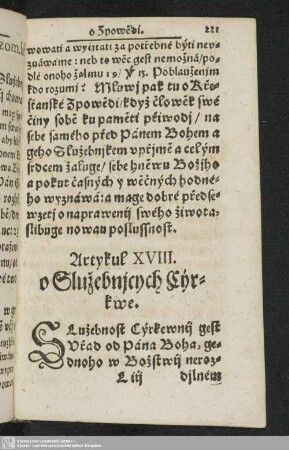 o Zpowědi. 221
wowati a wyčitati za potřebné býti neu-
znáwáme: neb to wěc gest nemožná/ po-
dlé onoho žalmu 19/ ỳ 13. Poblauzenjm
kdo rozumj? Mluwj pak tu o Kře-
sťanské Zpowědi/ když člowěk swé
činy sobě ku paměti přiwodj/ na
sebe samého před Pánem Bohem a
geho Služebnjkem vpřjmě a celým
srdcem žaluge/ sebe hněwu Božjho
a pokut časných y wěčných hodné-
ho wyznáwá: a mage dobré předse-
wzetj o naprawenj swého žiwota/
slibuge nowau poslussnost.
Artykul XVIII.
o Služebnjcých Cýr-
kwe.
SLužebnost Cýrkewnij gest
Vřad od Pána Boha, ge-
dnoho w Božstwij neroz-
L iij djlném